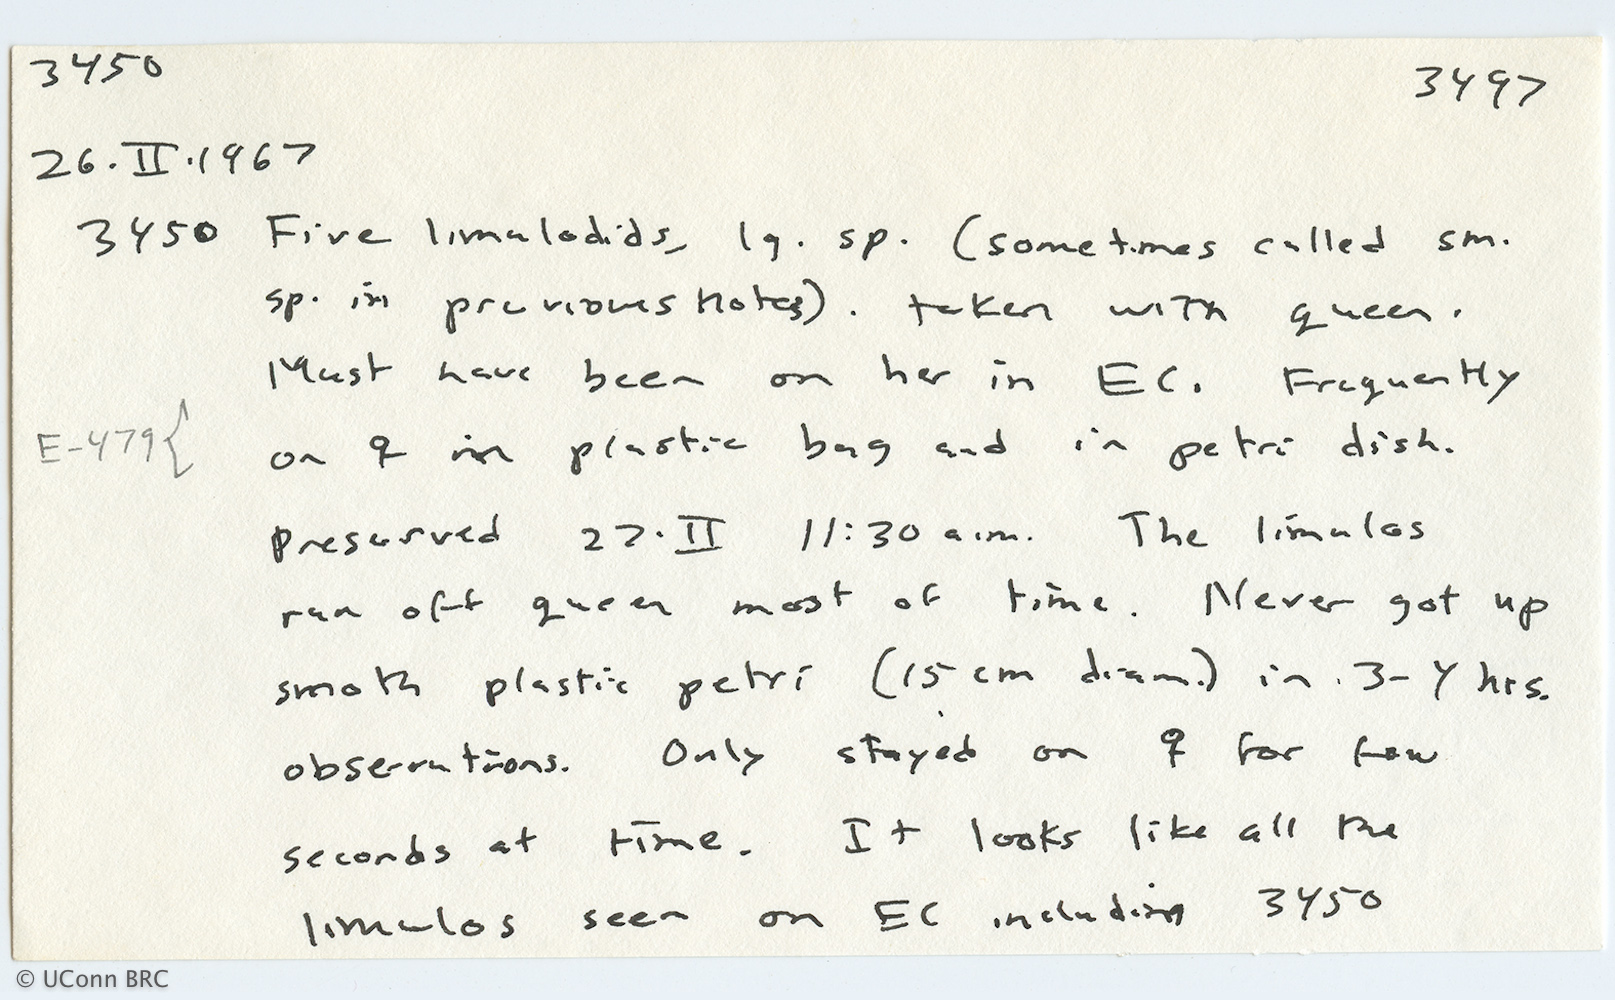 3450 3497
26.II.1967
3450 Five limulodids, lg. sp. (sometimes called sm.
sp. in previous notes). taken with queen.
Must have been on her in EC. Frequently
E-479{ on ♀ in plastic bag and in petri dish.
preserved 27.II 11:30 a.m. The limulos
ran off queen most of time. Never got up
smoth plastic petri (15 cm diam.) in 3-4 hrs.
observations. Only stayed on ♀ for few
seconds at time. It looks like all the
limulos seen on EC including 3450
© UConn BRC